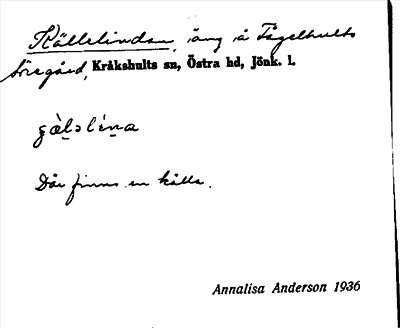 Källelindan, äng å Fågelhults
Söregård, Kråkshults sn, Östra hd, Jönk. l.
gä̀lǝlína
Där finns en källa.
Annalisa Anderson 1936